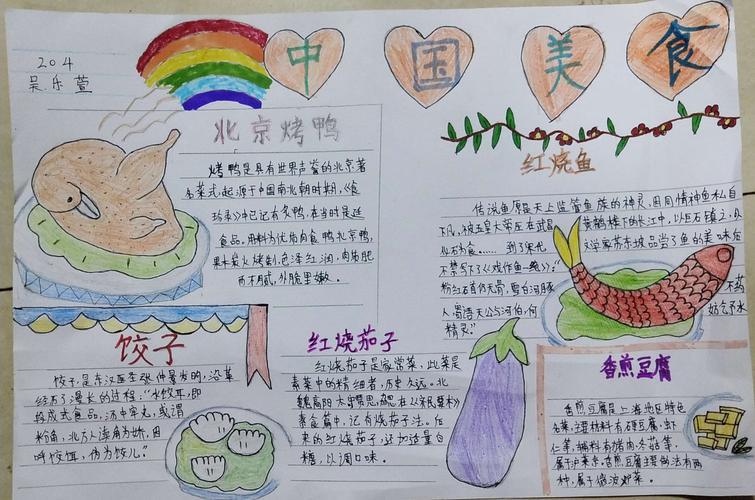 204
吴乐萱
中国美食
北京烤鸭
烤鸭是具有世界声誉的北京著
名菜式，起源于中国南北朝时期，《食
珍录》中已记有炙鸭，在当时是廷
食品，用料为优质肉食鸭北京鸭，
果木炭火烤制，色泽红润，肉质肥
而不腻，外脆里嫩。
红烧鱼
传说鱼原是天上监管鱼族的神灵，因同情神鱼私自
下凡，被玉皇大帝压在武昌黄鹤楼下的长江中，以巨石镇之，从
化石为食……到了宋代，文学家苏东坡品尝了鱼的美味后
不禁写下了《戏作鱼一绝》：“
粉红石首仍无骨，雪白河豚不药
人。寄语天公与河伯，何妨乞予水
精灵。”
饺子
饺子，是东汉医圣张仲景发明，沿革
经历了漫长的过程：“水饺耳，即
段成式食品，汤中牢丸，或谓
粉角，北人读角为娇，因
呼饺饵，伪为饺儿”
红烧茄子
红烧茄子是家常菜，此菜是
素菜中的精细者，历史久远。北
魏高阳太守贾思勰在《齐民要术》
素食篇中，记有烧茄子法。后
来的红烧茄子，还加适量白
糖，以调口味。
香煎豆腐
香煎豆腐是上海地区特色
名菜，主要材料有硬豆腐、虾
仁等，辅料有猪肉、冬菇等，
属于沪菜系。香煎豆腐主要做法有两
种，属于